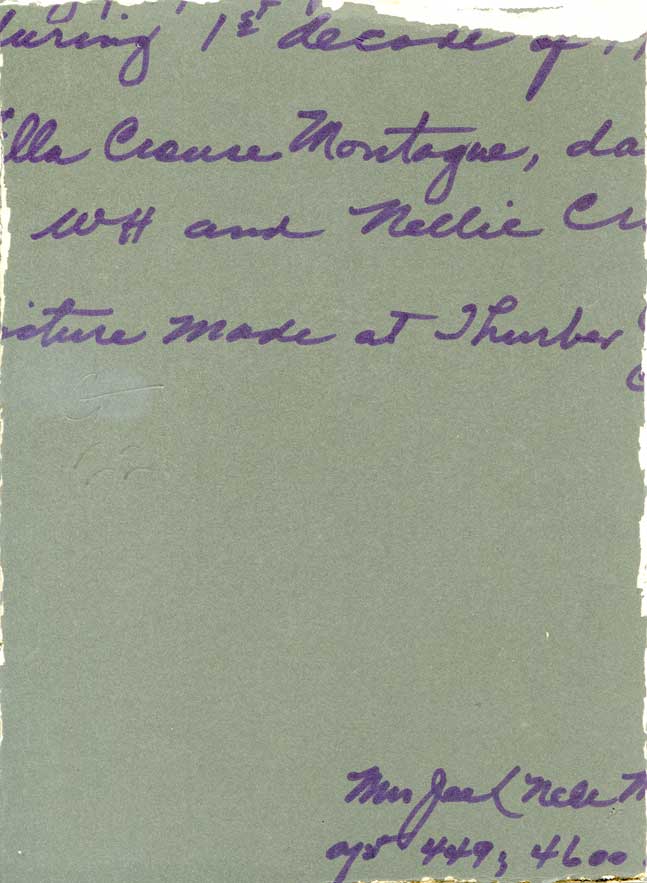 during 1st decade of
Ella Crouse Montague, da
WH and Nellie Cr
icture made at Thurber
Mrs Joe (Nell M
apt 449, 4600